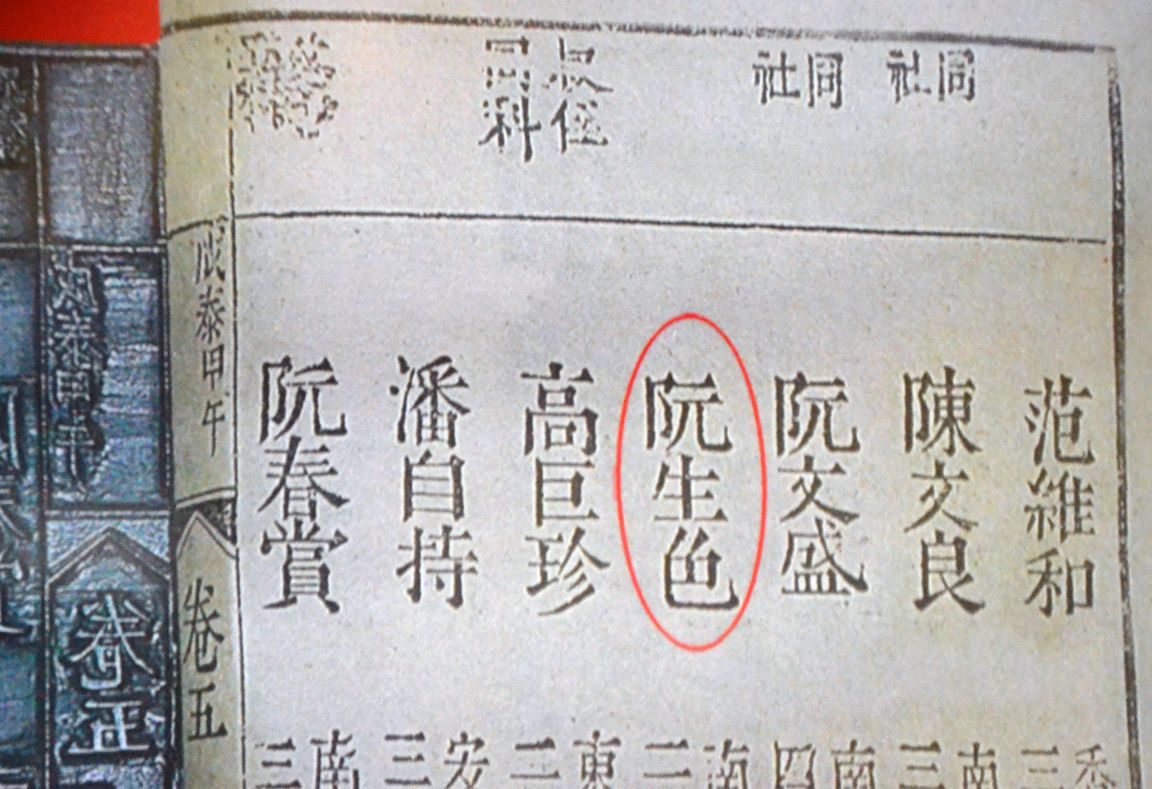 范維和
三
同社
陳文良
南三
同社
阮文盛
南四
阮生色
南二
叔侄
同科
高巨珍
東二
潘自持
安三
阮春賞
南三
成泰甲午
卷五